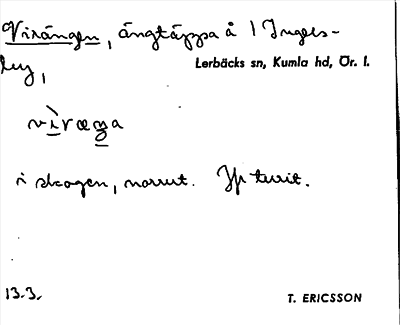 Virängen, ängtäppa å 1 Inges-
by,
Lerbäcks sn, Kumla hd, Ör. l.
vìræŋa
i skogen, norrut.
13.3.
T. ERICSSON